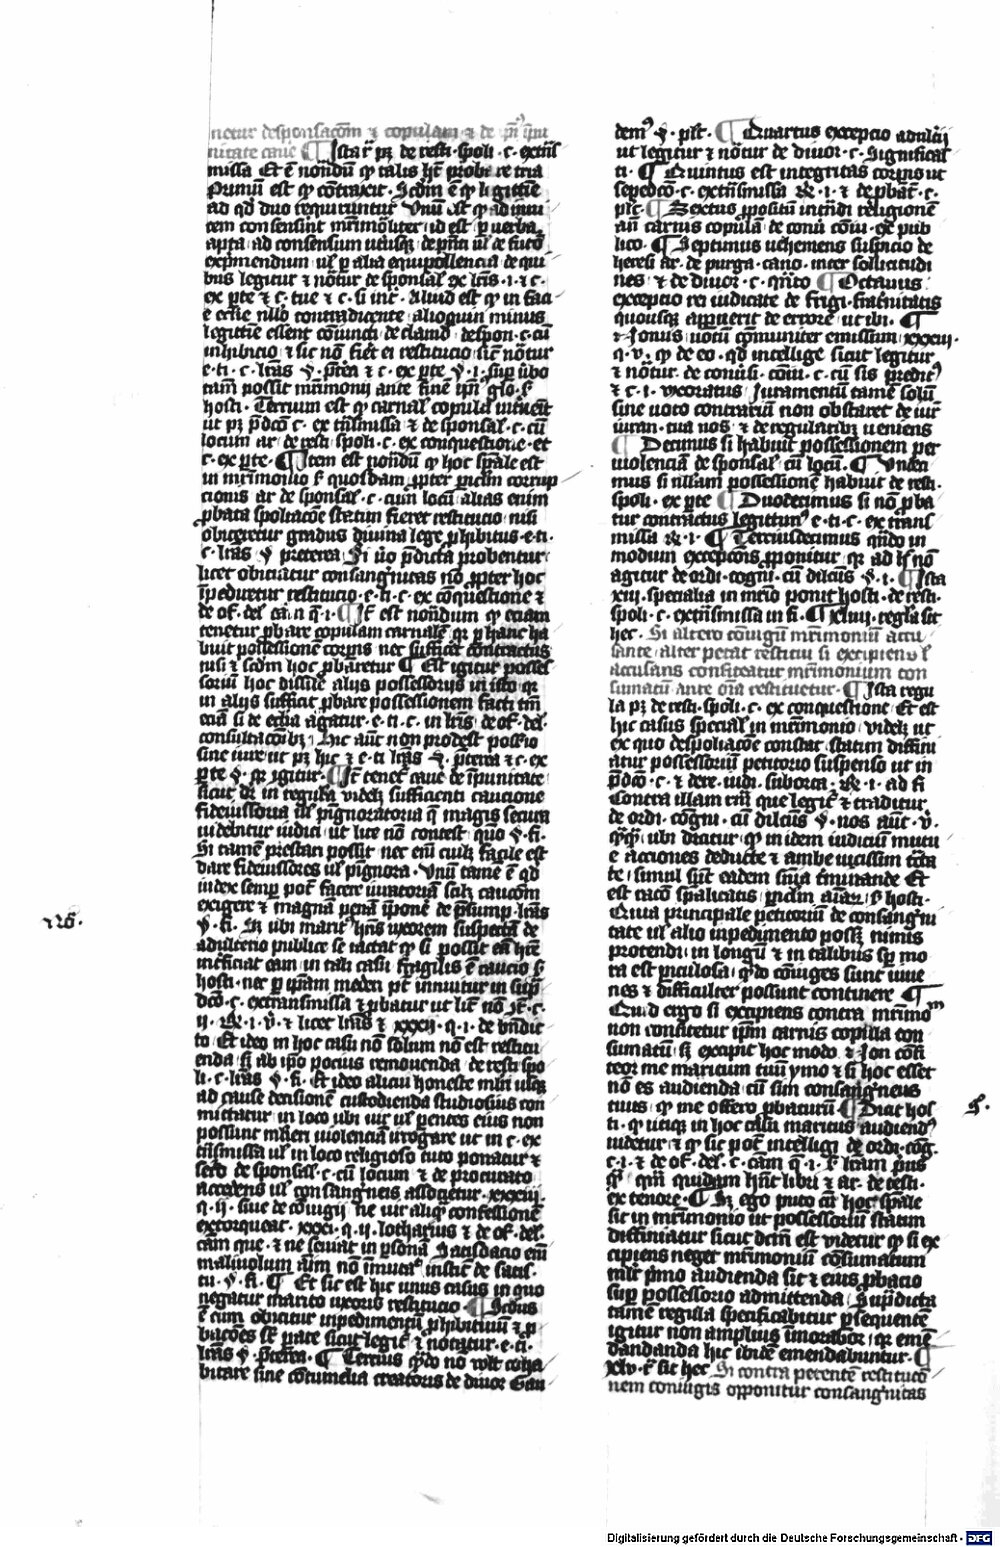 netur desponsacōm ⁊ copulam ⁊ de
nitate cauē ¶ Ista r̄ pꝫ de resti· spoli· c· extn̄s
missa Et ē nondū ꝙ talis hꝫ probare tria
Primū est ꝙ cōtraxit· Scd̄m ē ꝙ legittīe
ad qd̄ duo requiruntur Vnū est ꝙ ad inui
cem consensint mr̄moīliter id est ꝑ uerba
apta ad consensum utriusqꝫ de pn̄ti ul̄ de futō
exprimendum ul̄ ꝑ alia equipollencia de qui
bus legitur ⁊ nōtur de sponsal̄ ex lr̄is ·1· ⁊ c·
ex ꝑte ⁊ c· tue ⁊ c· si int̄· Aliud est ꝙ in faci
e eccīe nllō contradicente alioquin minus
legittīe essent cōiuncti de cland· despon· c· cū
inhibicio ⁊ sic nō fiet ei restitucio sic̄ nōtur
e· ti· c· lr̄as ꝟ· pt̄ea ⁊ c· ex ꝑte ꝟ· 1· sup ūbo
tam̄ possit mr̄monij ante finē ip̄ī glo· ẜ
hosti· Tercium est ꝙ carnal̄ copula inteuēit
ut pꝫ p̄dc̄o c· ex tn̄smissa ⁊ de sponsal̄· c· cū
locum ar· de resti spoli· c· ex conquestione· et
c· ex ꝑte· ¶ Item est nond̄ū ꝙ hoc sp̄ale est
in mr̄imonio ẜ quosdam ꝓpter ꝑiclm̄ corrup
cionis ar de sponsal̄· c· cum locū alias enim
ꝓbata spoliacōe statim fieret restitucio nisi
obiceretur gradus diuina lege ꝓhibitus e· ti·
c· lr̄as ꝟ preterea Si ūo p̄dicta probentur
licet obiciatur consang'nitas nō ꝓpter hoc
īpediretur restitucio· e· ti· c· ex cōquestione ⁊
de of· del̄ ca· n q̄· 1· ¶ It̄ est nondum ꝙ etiam
tenetur ꝓbare copulam carnalē qr ꝑ hanc ha
buit possessionē corꝑis nec sufficit contractus
nisi ⁊ scd̄m hoc ꝓbaretur ¶ Est igitur posses
soriū hoc dissile alijs possessorijs in isto qr
in alijs sufficit ꝓbare possessionem facti tm̄
eciā si de ecc̄ia agatur· e· ti· c· in lr̄is de of· del̄·
consultacōibꝫ· Hic aūt non prodest poss̄io
sine iure ut pꝫ hic ⁊ e· ti· lr̄as ꝟ· pt̄erea ⁊ c· ex
ꝑte ꝟ· qr igitur· ¶ It̄ tenet̄ cauē de īpunitate
sicut dr̄ in regula videlꝫ sufficienti caucione
fideiussoria ul̄ pignoratoria q̄ magis secura
uidebitur iudici ut lite nō contest̄ quō ꝟ· fi·
Si tamē prestari possit nec eni ciuilꝫ facile est
dare fideiussores ul̄ pignora· Vnū tamē ē qd̄
iudex semꝑ pot̄ facere iuratoriā scilꝫ caucōm
exigere ⁊ magnā penā īponē de p̄sump· lr̄as
ꝟ· fi· Sꝫ ubi marit' hn̄s uxorem suspectā de
adulterio publice se iactat ꝙ si possit eā hr̄e
interficiat eam in tali casu fragilis ē caucio ẜ
hosti· nec ꝑ ip̄am mederi pt̄ innuitur in sup̄
dc̄o· c· extransmissa ⁊ ꝓbatur ut lit̄ nō 9t̄· c·
ij· ꝶ· 1· ꝟ· ⁊ licet lr̄is ⁊ xxxij· q· 1· de bn̄dic
to Et ideo in hoc casu nō solum nō est restitu
enda sꝫ ab ip̄o pocius remouenda de resti spo
li· c· lr̄as ꝟ· fi· Et ideo alicui honeste mlr̄i usqꝫ
ad cause decisionē custodienda studiosius com
mittatur in loco ubi uir ul̄ parentes eius non
possunt mlr̄i uiolenciā irrogare ut in c· ex
tn̄smissa ul̄ in loco religioso tuto ponatur ⁊
secto de sponsal̄· c· cū locum ⁊ de procurato
accedens ul̄ consang'neis assocꝫetur xxxiij·
q· ij· siue de cōiugij ne uir aliq̄ confessionē
extorqueat· xxxi· q· ij· lotharius ⁊ de of· del·
cām que· ⁊ ne seruat in ꝑsonā Satisdacio eni
maliuolum aīm nō īmutat' instit̄ de satis·
tu· ꝟ· fi· ¶ Et sic est hic unus casus in quo
negatur marito uxoris restitucio ¶ Scd̄us
ē cum obicitur inpedimentū ꝓhibitiuū ⁊ ꝓ
bacōes st̄ parate sicut legit̄ ⁊ nōtatur· e· ti·
lr̄as ꝟ· pt̄erea· ¶ Tercius qn̄do nō wlt coha
bitare sine cōtumelia creatoris de diuor Gau
ꝛ̄ no·
dem' ꝟ· plt· ¶ Quartus excepcio adult̄ij
ut legitur ⁊ nōtur de diuor· c· Significas
ti· ¶ Quintus est integritas corꝑis ut
sepedc̄o· c· extn̄smissa ꝶ· 1· ⁊ de ꝓbat̄· c·
plt̄· ¶ Sextus ꝓpositū intrādi religionē
añ carnis copulā de conū cōiu· ex pub
lico· ¶ Septimus uehemens suspicio de
heresi ar· de purga· cano· inter sollicitudi
nes ⁊ de diuor· c· qn̄ito ¶ Octauus
excepcio rei iudicate de frigi· fraternitatis
quousqꝫ apparuerit de errore ut ibi· ¶
Nonus uotū cōmuniter emissum xxxiij·
q· v· ꝙ de eo· qd̄ intellige sicut legitur
⁊ nōtur· de conū· cōiu· c· cū sis predic'
⁊ c· 1· uxoratus Juramentū tamē solū
sine uoto contrariū non obstaret de iur
iuran· tua nos ⁊ de regularibꝫ ueniens
¶ Decimus si habuit possessionem per
uiolenciā de sponsal̄ cū locū· ¶ Vnde
mus si nllam possessionē habuit de resti·
spoli· ex ꝑte ¶ Duodecimus si nō ꝓba
tur contractus legittim' e· ti· c· ex trans
missa ꝶ· 1· ¶ Terciusdecimus qn̄do in
modum excepcōis ꝓponitur qr ad hͦ nō
agitur de ordi· cogn· cū dilcūs ꝟ· 1· ¶ Ista
xiij· specialia in mr̄io ponit hosti· de resti·
spoli· c· extn̄smissa in fi· ¶ xliiij· regla sit
hec· Si altero cōiugū mr̄imoniū accu
sante alter petat restitui si excipiens ul̄
accusans confiteatur mr̄imonium con
sumatū ante oīa restituetur· ¶ Ista regu
la pꝫ de resti· spoli· c· ex conquestione Et est
hic casus special̄ in mr̄imonio videlꝫ ut
ex quo despoliacōe constat statim diffini
atur possessoriū petitorio suspenso ut in
p̄dc̄o· c· ⁊ dere· iudi· suborta· ꝶ· 1· ad fi
Contra illam tn̄ que legit̄ ⁊ traditur
de ordi· cogni· cū dilcūs ꝟ· nos aut̄· v·
ubi dicitur ꝙ in idem iudiciū mutu
e acciones deducte ⁊ ambe uicissim tc̄ta
te simul sūt eadem sn̄ia t̄minande Et
est racō sp̄alitatis ꝑiclm aīaꝝ ẜ hosti·
Quia principale petitoriū de consang'ni
tate ul̄ alio inpedimento possꝫ nimis
protendi in longū ⁊ in talibus sp̄ mo
ra est ꝑiculosa qn̄do cōiuges sunt iuue
nes ⁊ difficulter possunt continere ¶
Quid ergo si excipiens contra mr̄imoᵐ
non confitetur ip̄m carnis copula con
sumatū sꝫ excipit hoc modo Non confi
teor me maritum tuū ymo ⁊ si hoc essꝫ
nō es audienda cū sim consang'neus
tuus ꝙ me offero ꝓbaturū ¶ Dicit hos
ti· ꝙ utiqꝫ in hoc casu maritus audiend'
uidetur ⁊ ꝙ sic pot̄ intelligi de ordi· cōg·
c· 1· ⁊ de of· del̄· c· cām q̄· 1· ẜ lr̄am
quidam hn̄t libri ⁊ ar· de resti·
ex tenore· ¶ Sꝫ ego puto cū hoc sp̄ale
sit in mr̄imonio ut possessoriū statim
diffiniatur sicut dc̄m est videtur ꝙ si ex
cipiens neget mr̄imoniū cōsumatum
mlr̄ p̄mo audienda sit ⁊ eius ꝓbacio
sup possessorio admittenda Sup̄dicta
tamē regula specificabitur ꝑ sequentē
igitur non amplius īmorabor qr emē
dandanda hic ibidē emendabuntur· ¶
xlv· r̄ sit hec Si contra petentē restitucō
nem coniugis opponitur consang'nitas
Digitalisierung gefördert durch die Deutsche Forschungsgemeinschaft - DFG